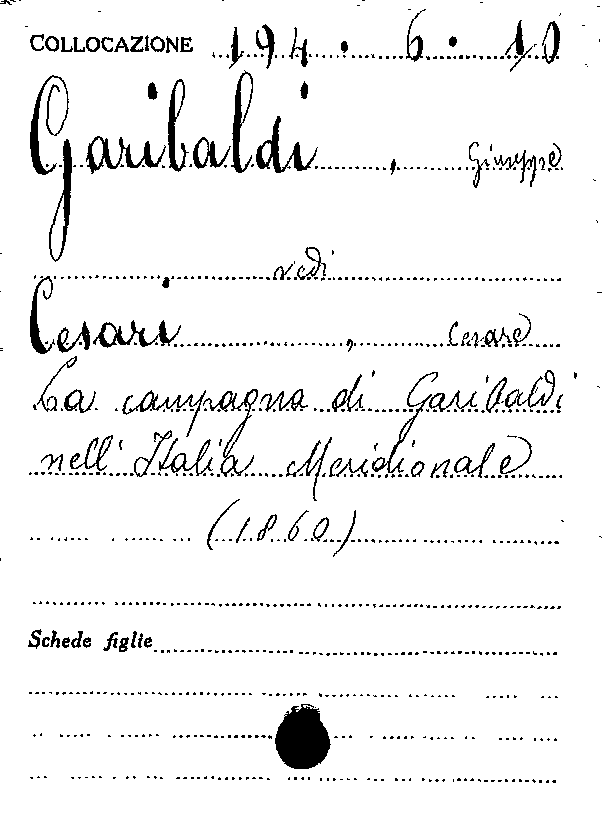 COLLOCAZIONE 194 . 6 . 10
Garibaldi , Giuseppe
vedi
Cesari , Cesare
La campagna di Garibaldi
nell' Italia Meridionale
(1860)
Schede figlie